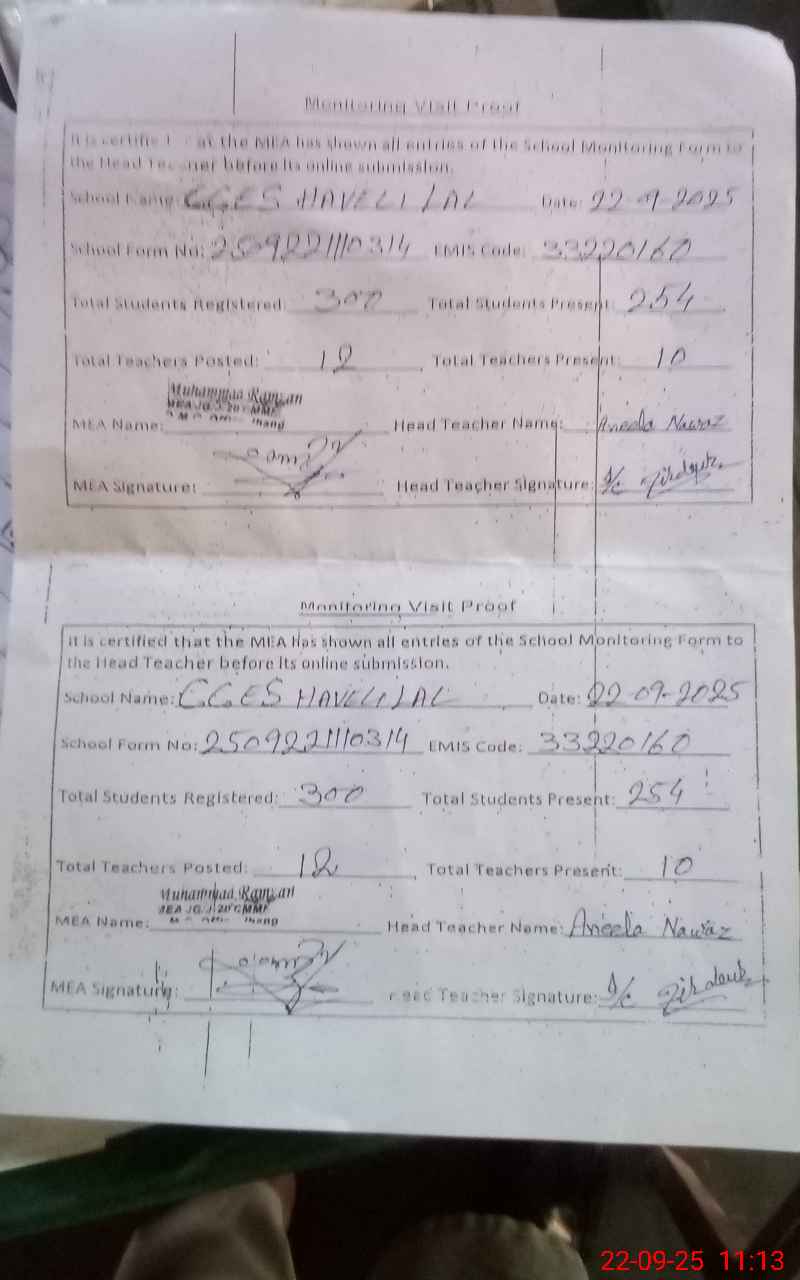 Monitoring Visit Proof
It is certified that the MEA has shown all entries of the School Monitoring Form to
the Head Teacher before its online submission.
School Name: GGES HAVELI LAL Date: 22-09-2025
School Form No: 2509221110314 EMIS Code: 33220160
Total Students Registered: 300 Total Students Present: 254
Total Teachers Posted: 12 Total Teachers Present: 10
Muhammad Ramzan
MEA Name: Head Teacher Name: Aneela Nawaz
MEA Signature: Head Teacher Signature:
Monitoring Visit Proof
It is certified that the MEA has shown all entries of the School Monitoring Form to
the Head Teacher before its online submission.
School Name: GGES HAVELI LAL Date: 22-09-2025
School Form No: 2509221110314 EMIS Code: 33220160
Total Students Registered: 300 Total Students Present: 254
Total Teachers Posted: 12 Total Teachers Present: 10
Muhammad Ramzan
MEA Name: Head Teacher Name: Aneela Nawaz
MEA Signature: Head Teacher Signature:
22-09-25 11:13